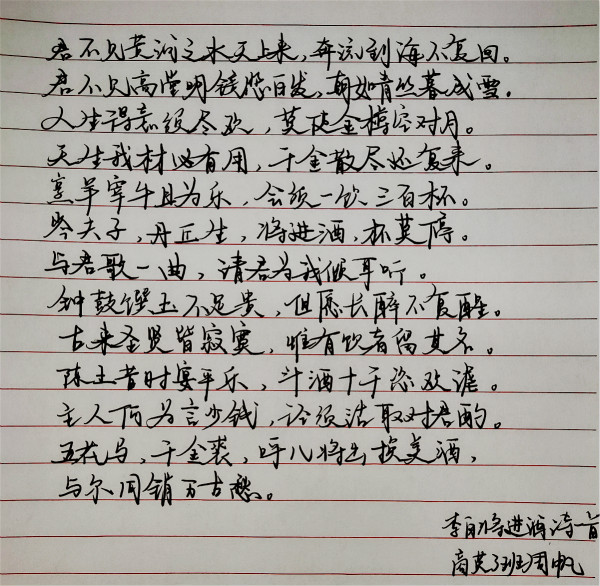 君不见黄河之水天上来，奔流到海不复回。
君不见高堂明镜悲白发，朝如青丝暮成雪。
人生得意须尽欢，莫使金樽空对月。
天生我材必有用，千金散尽还复来。
烹羊宰牛且为乐，会须一饮三百杯。
岑夫子，丹丘生，将进酒，杯莫停。
与君歌一曲，请君为我倾耳听。
钟鼓馔玉不足贵，但愿长醉不复醒。
古来圣贤皆寂寞，惟有饮者留其名。
陈王昔时宴平乐，斗酒十千恣欢谑。
主人何为言少钱，径须沽取对君酌。
五花马，千金裘，呼儿将出换美酒，
与尔同销万古愁。
李白将进酒诗一首
高英班周帆